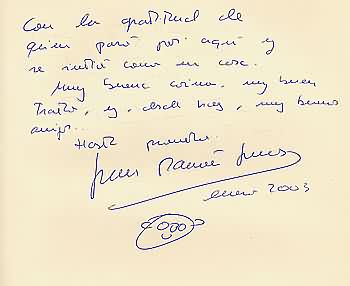 Con la gratitud de
quien pasó por aquí y
se sintió como en casa.
Muy buena cocina, muy buen
trato, y, desde hoy, muy buenos
amigos.
Hasta pronto.
enero 2003